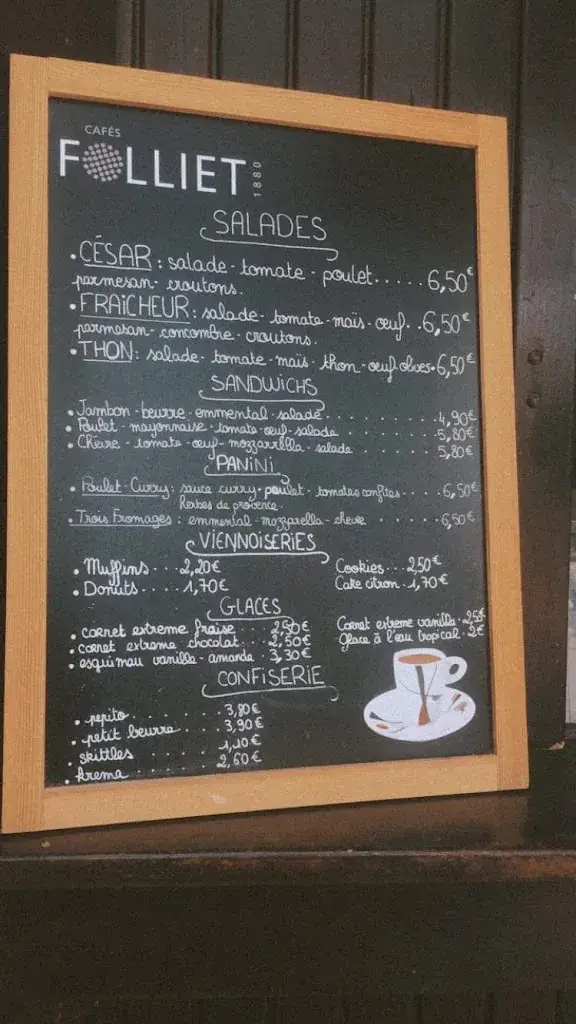 CAFÉS
FOLLIET
1880
SALADES
• CÉSAR : salade - tomate - poulet..... 6,50€
parmesan - croutons.
• FRAÎCHEUR : salade - tomate - maïs - oeuf. . 6,50€
parmesan - concombre - croutons.
• THON : salade - tomate - maïs - thon - oeuf olives • 6,50€
SANDWICHS
• Jambon - beurre - emmental - salade . . . . . . . . 4,90€
• Poulet - mayonnaise - tomate - oeuf - salade . . . . . . . 5,80€
• Chèvre - tomate - oeuf - mozzarrella - salade . . . . . . 5,80€
PANINI
• Poulet - Curry : sauce curry - poulet - tomates confites . . . . 6,50€
Herbes de provence.
• Trois Fromages : emmental - mozzarella - chèvre . . . . . . 6,50€
VIENNOISERIES
• Muffins . . . 2,20€ Cookies . . . 2,50€
• Donuts . . . . 1,70€ Cake citron . 1,70€
GLACES
• cornet extreme fraise . . . 2,50€ Cornet extreme vanille .
• cornet extreme chocolat . . 2,50€ Glace à l'eau tropical . 2€
• esquimau vanille - amande . 3,30€
CONFISERIE
• pepito . . . . . . . 3,90€
• petit beurre . . . 3,90€
• skittles . . . . . . 1,10€
• krema . . . . . . 2,60€